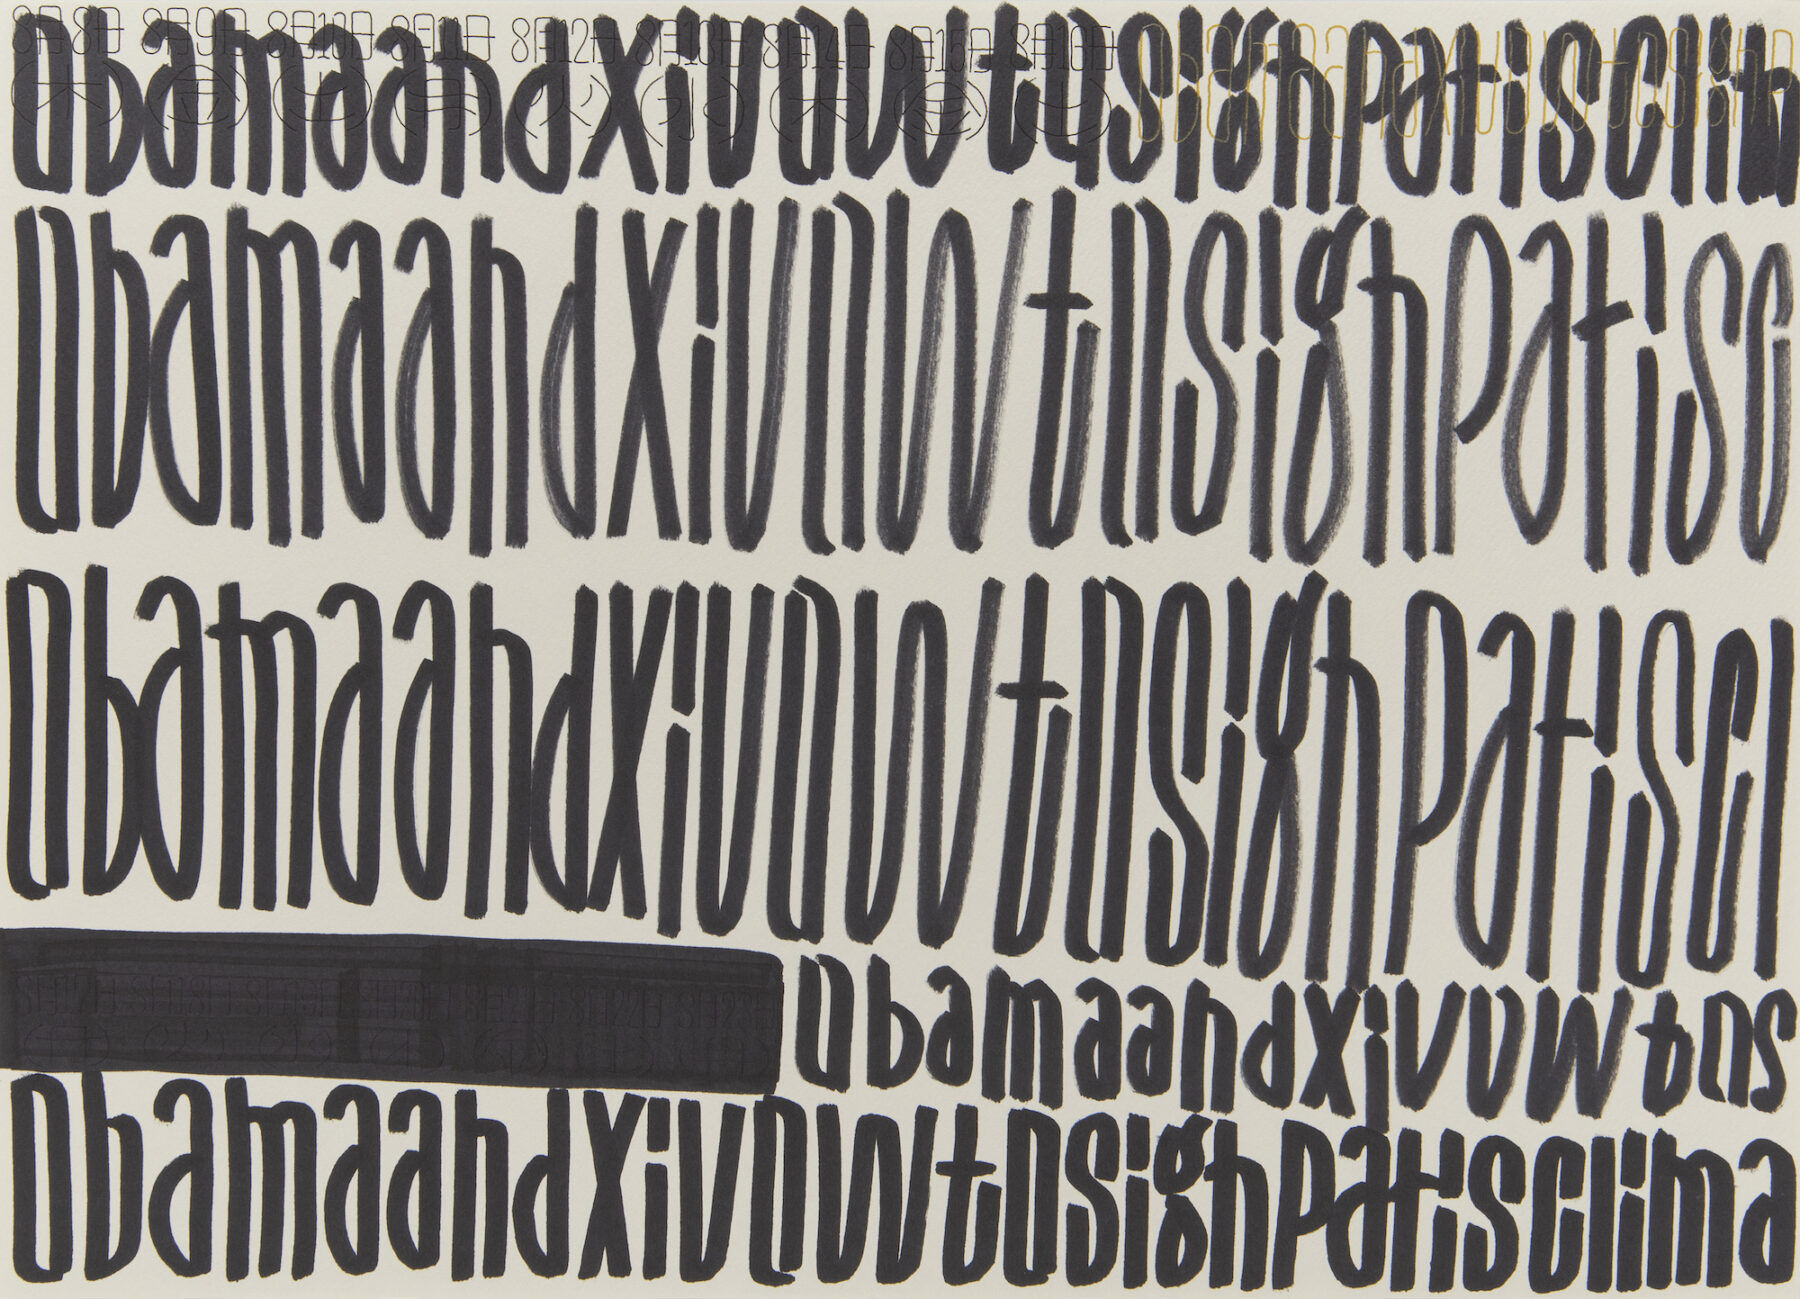 8月8日 8月9日 8月10日 8月11日 8月12日 8月13日 8月14日 8月15日 8月16日
Obamaandxivowtosignparisclim
Obamaandxivowtosignparisc
Obamaandxivowtosignpariscl
8月17日 8月18日 8月19日 8月20日 8月21日 8月22日 8月23日
Obamaandxivowtos
Obamaandxivowtosignparisclima